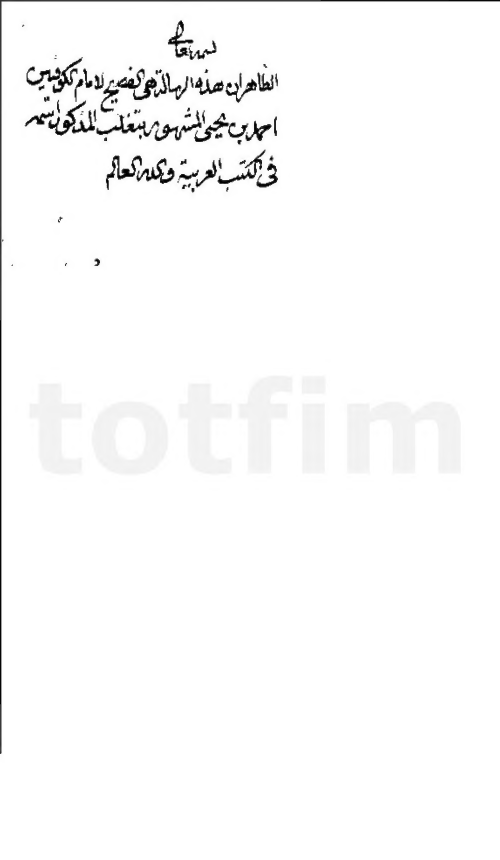 بسمه تعالى
الظاهر ان هذه الرسالة هى الفصيح لامام الكوفيين
احمد بن يحيى المشهور بثعلب المذكور اسمه
فى الكتب العربية والله العالم
totfim